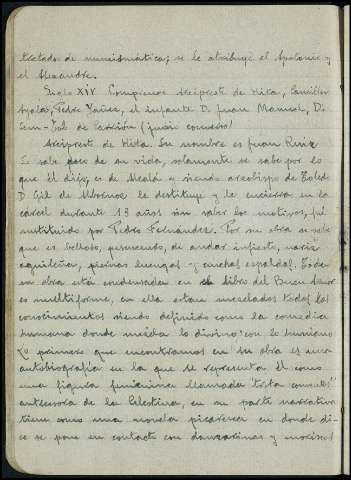 tratado de numismática; se le atribuye el Apolonio y
el Alexandre.
Siglo XIV Comprende Arcipreste de Hita, Canciller
Ayala, Pedro Yañez, el infante D. Juan Manuel, D.
Sem-Tob de Carrión (judio converso)
Arcipreste de Hita Su nombre es Juan Ruiz
Se sabe poco de su vida, solamente se sabe por lo
que él dijo, es de Alcalá y siendo arzobispo de Toledo
D. Gil de Albornoz le destituye y le encierra en la
cárcel durante 13 años sin saber los motivos, fué
sustituido por Pedro Fernández. Por su obra se sabe
que es belloso, pescuezudo, de andar infiesto, nariz
aguileña, piernas luengas y anchas espaldas. Toda
su obra está condensada en el libro del Buen Amor
es multiforme, en ella estan mezclados todos los
conocimientos siendo definido como la comedia
humana donde mezcla lo divino con lo humano
Lo primero que encontramos en su obra es una
autobiografía en la que se representa él como
una figura femenina llamada
antecesora de la Celestina, en su parte narrativa
tiene como una novela picaresca en donde di-
ce se pone en contacto con danzarinas y moriscas